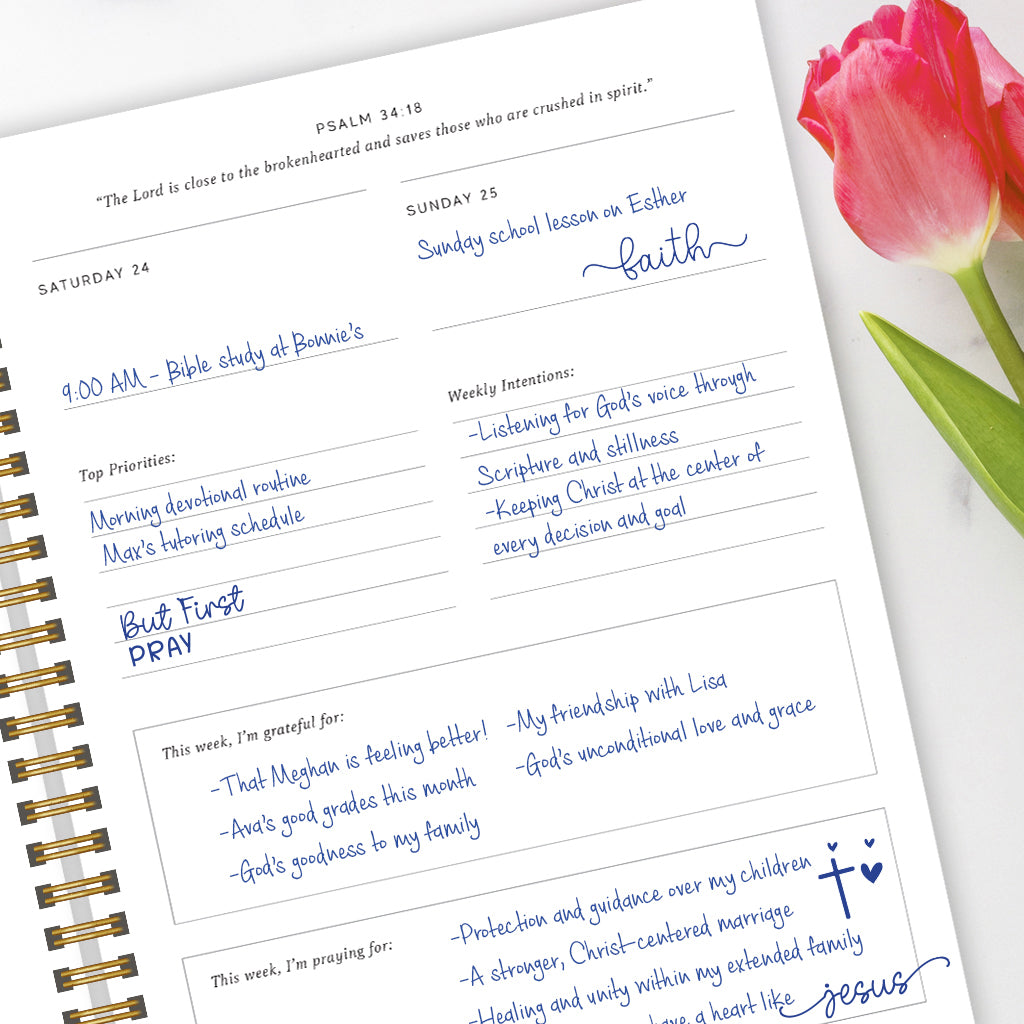 PSALM 34:18
“The Lord is close to the brokenhearted and saves those who are crushed in spirit.”
SATURDAY 24
9:00 AM - Bible study at Bonnie's
SUNDAY 25
Sunday school lesson on Esther
faith
Top Priorities:
Morning devotional routine
Max's tutoring schedule
But First
PRAY
Weekly Intentions:
-Listening for God's voice through
Scripture and stillness
-Keeping Christ at the center of
every decision and goal
This week, I'm grateful for:
-That Meghan is feeling better!
-Ava's good grades this month
-God's goodness to my family
-My friendship with Lisa
-God's unconditional love and grace
This week, I'm praying for:
-Protection and guidance over my children
-A stronger, Christ-centered marriage
-Healing and unity within my extended family
have a heart like jesus